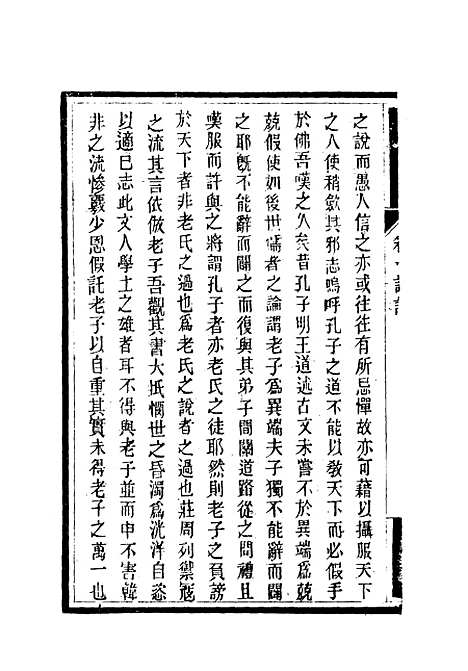 之說而愚人信之亦或往往有所忌憚故亦可藉以攝服天下
之人使稍斂其邪志嗚呼孔子之道不能以敎天下而必假手
於佛吾嘆之久矣昔孔子明王道述古文未嘗不於異端爲兢
兢假使如後世儒者之論謂老子爲異端夫子獨不能辭而闢
之耶旣不能辭而闢之而復與其弟子間關道路從之問禮且
嘆服而許與之將謂孔子者亦老氏之徒耶然則老子之負謗
於天下者非老氏之過也爲老氏之說者之過也莊周列禦寇
之流其言依倣老子吾觀其書大抵憫世之昏濁爲洸洋自恣
以適已志此文人學士之雄者耳不得與老子並而申不害韓
非之流慘礉少恩假託老子以自重其質未得老子之萬一也